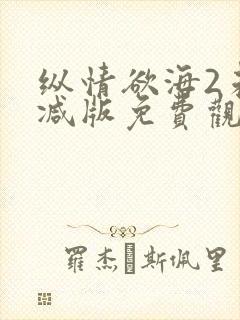 纵情欲海2未
减版免費觀
羅杰·斯佩里